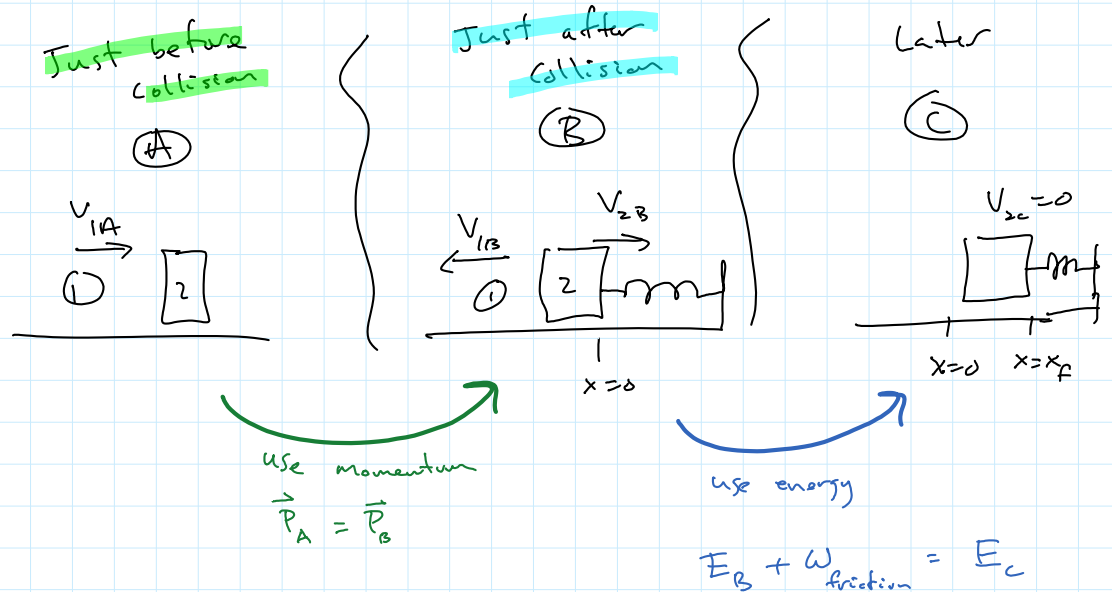 Just before
collision
A
V1A
1
2
Just after
collision
B
V1B
V2B
1
2
x=0
Later
C
V2c=0
x=0
x=xf
use momentum
P⃗A = P⃗B
use energy
EB + Wfriction = Ec